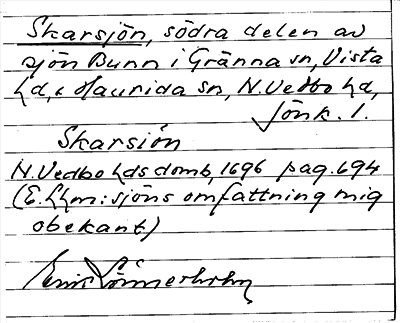 Skarsjön, södra delen av
sjön Bunn i Gränna sn, Vista
hd, & Haurida sn, N. Vedbo hd,
Jönk. l.
Skarsión
N. Vedbo hds domb, 1696 pag. 694
(E. Lhm: sjöns omfattning mig
obekant)